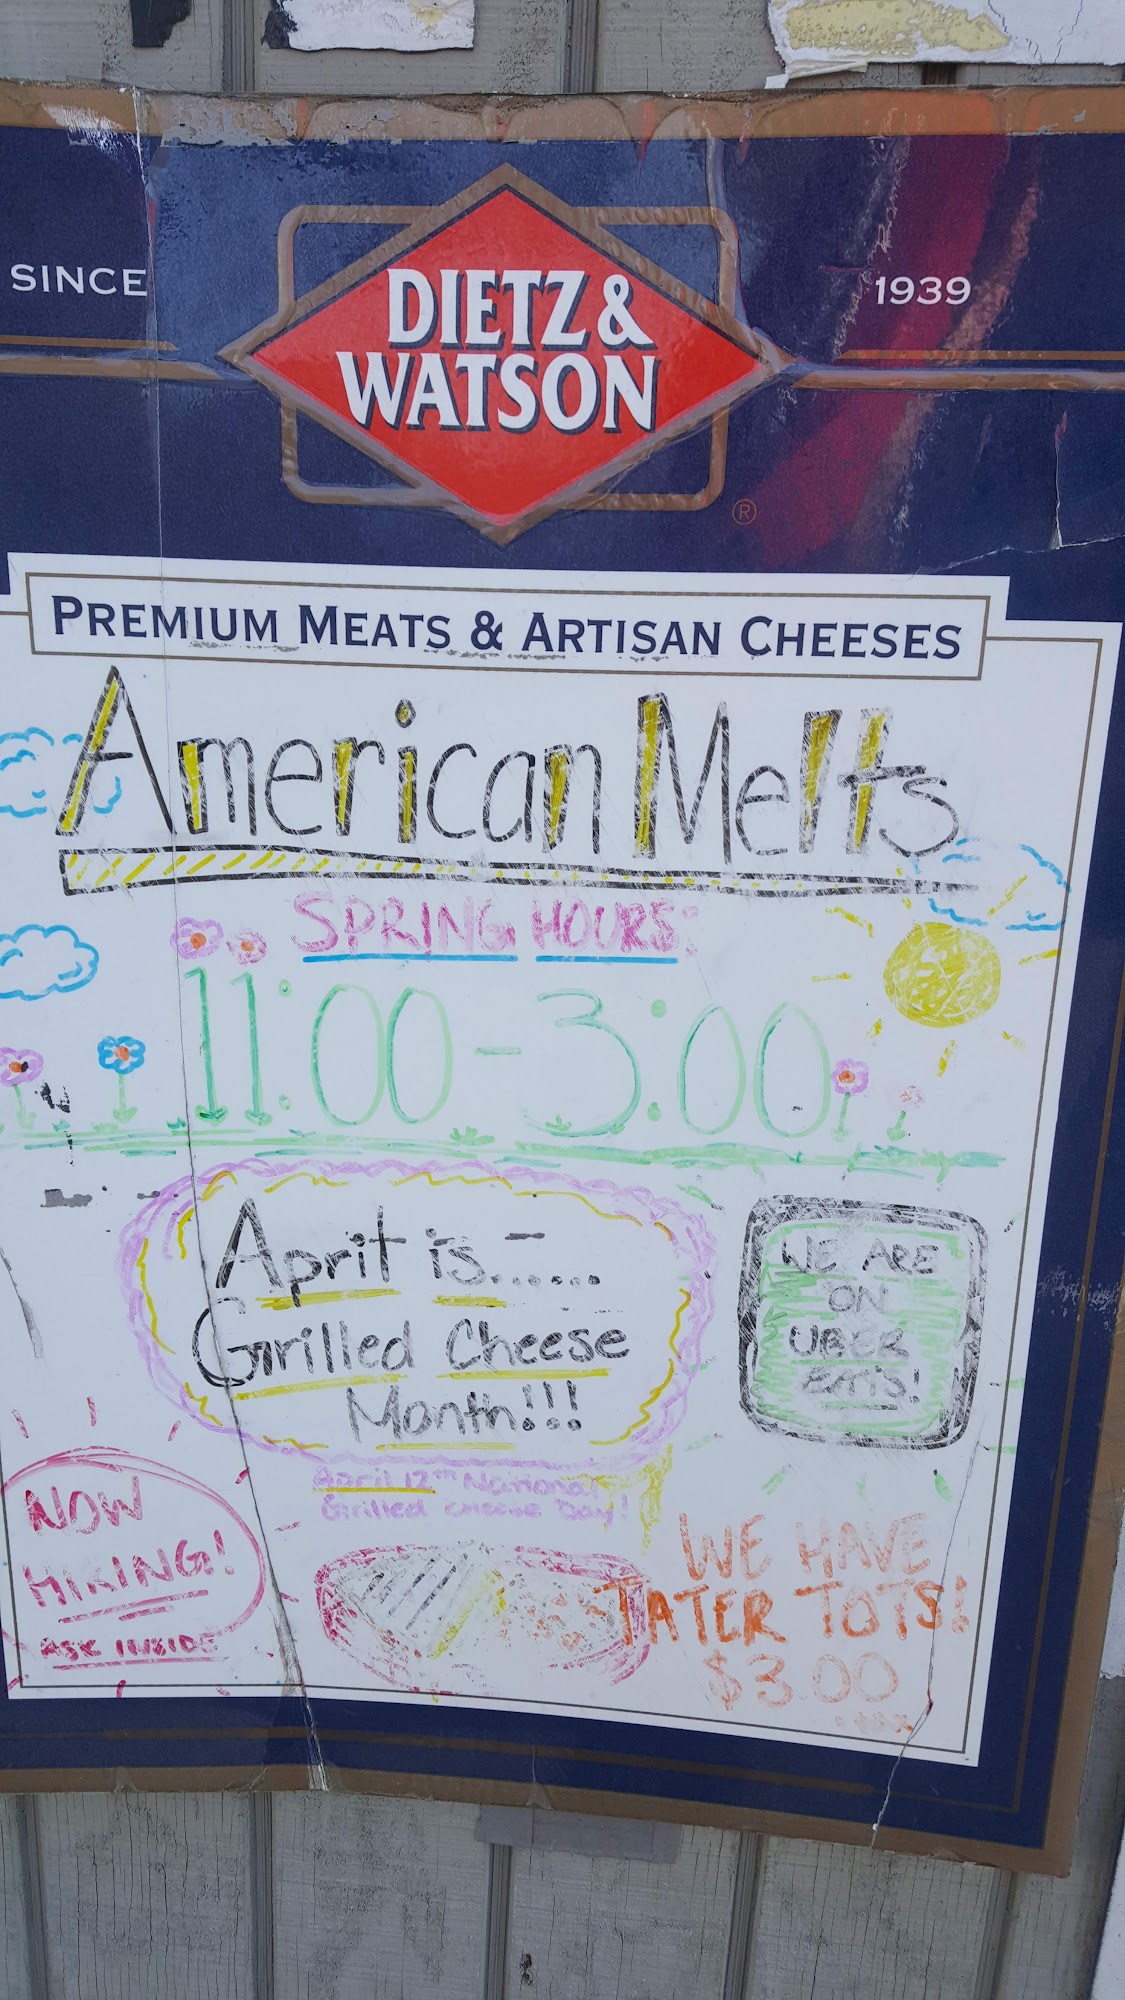 SINCE
DIETZ &
WATSON
®
1939
PREMIUM MEATS & ARTISAN CHEESES
American Melts
SPRING HOURS:
11:00-3:00
April is......
Grilled Cheese
Month!!!
April 12th National
Grilled Cheese Day!
WE ARE
ON
UBER
EATS!
NOW
HIRING!
ASK INSIDE
WE HAVE
TATER TOTS!
$3.00